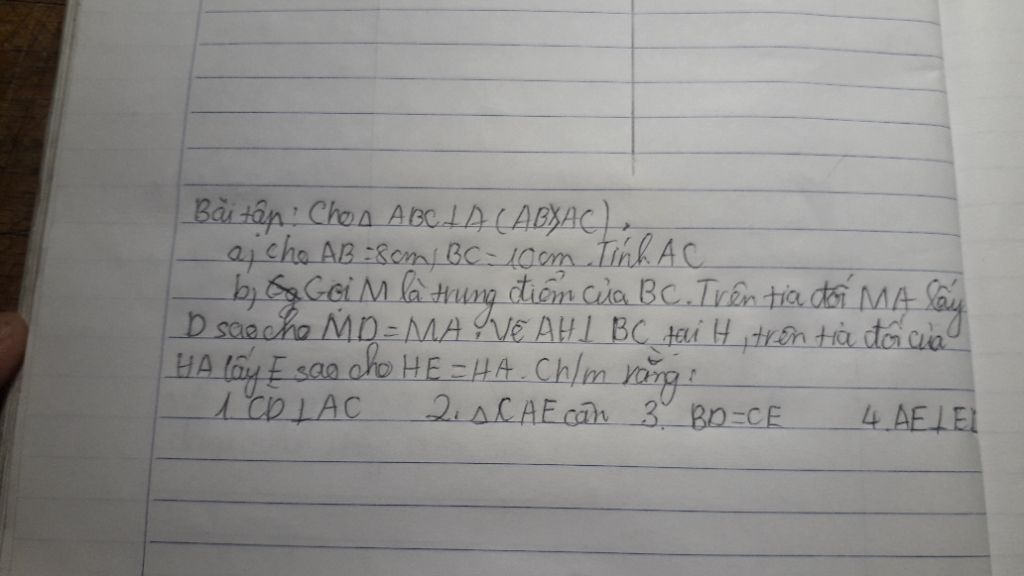 Bài tập: Cho Δ ABC ⊥ A (AB>AC),
a, cho AB = 8cm, BC = 10cm. Tính AC
b, Gọi M là trung điểm của BC. Trên tia đối MA lấy
D sao cho MD = MA. Vẽ AH ⊥ BC tại H, trên tia đối của
HA lấy E sao cho HE = HA. Ch/m rằng:
1. CD ⊥ AC 2. Δ CAE cân 3. BD = CE 4. AE ⊥